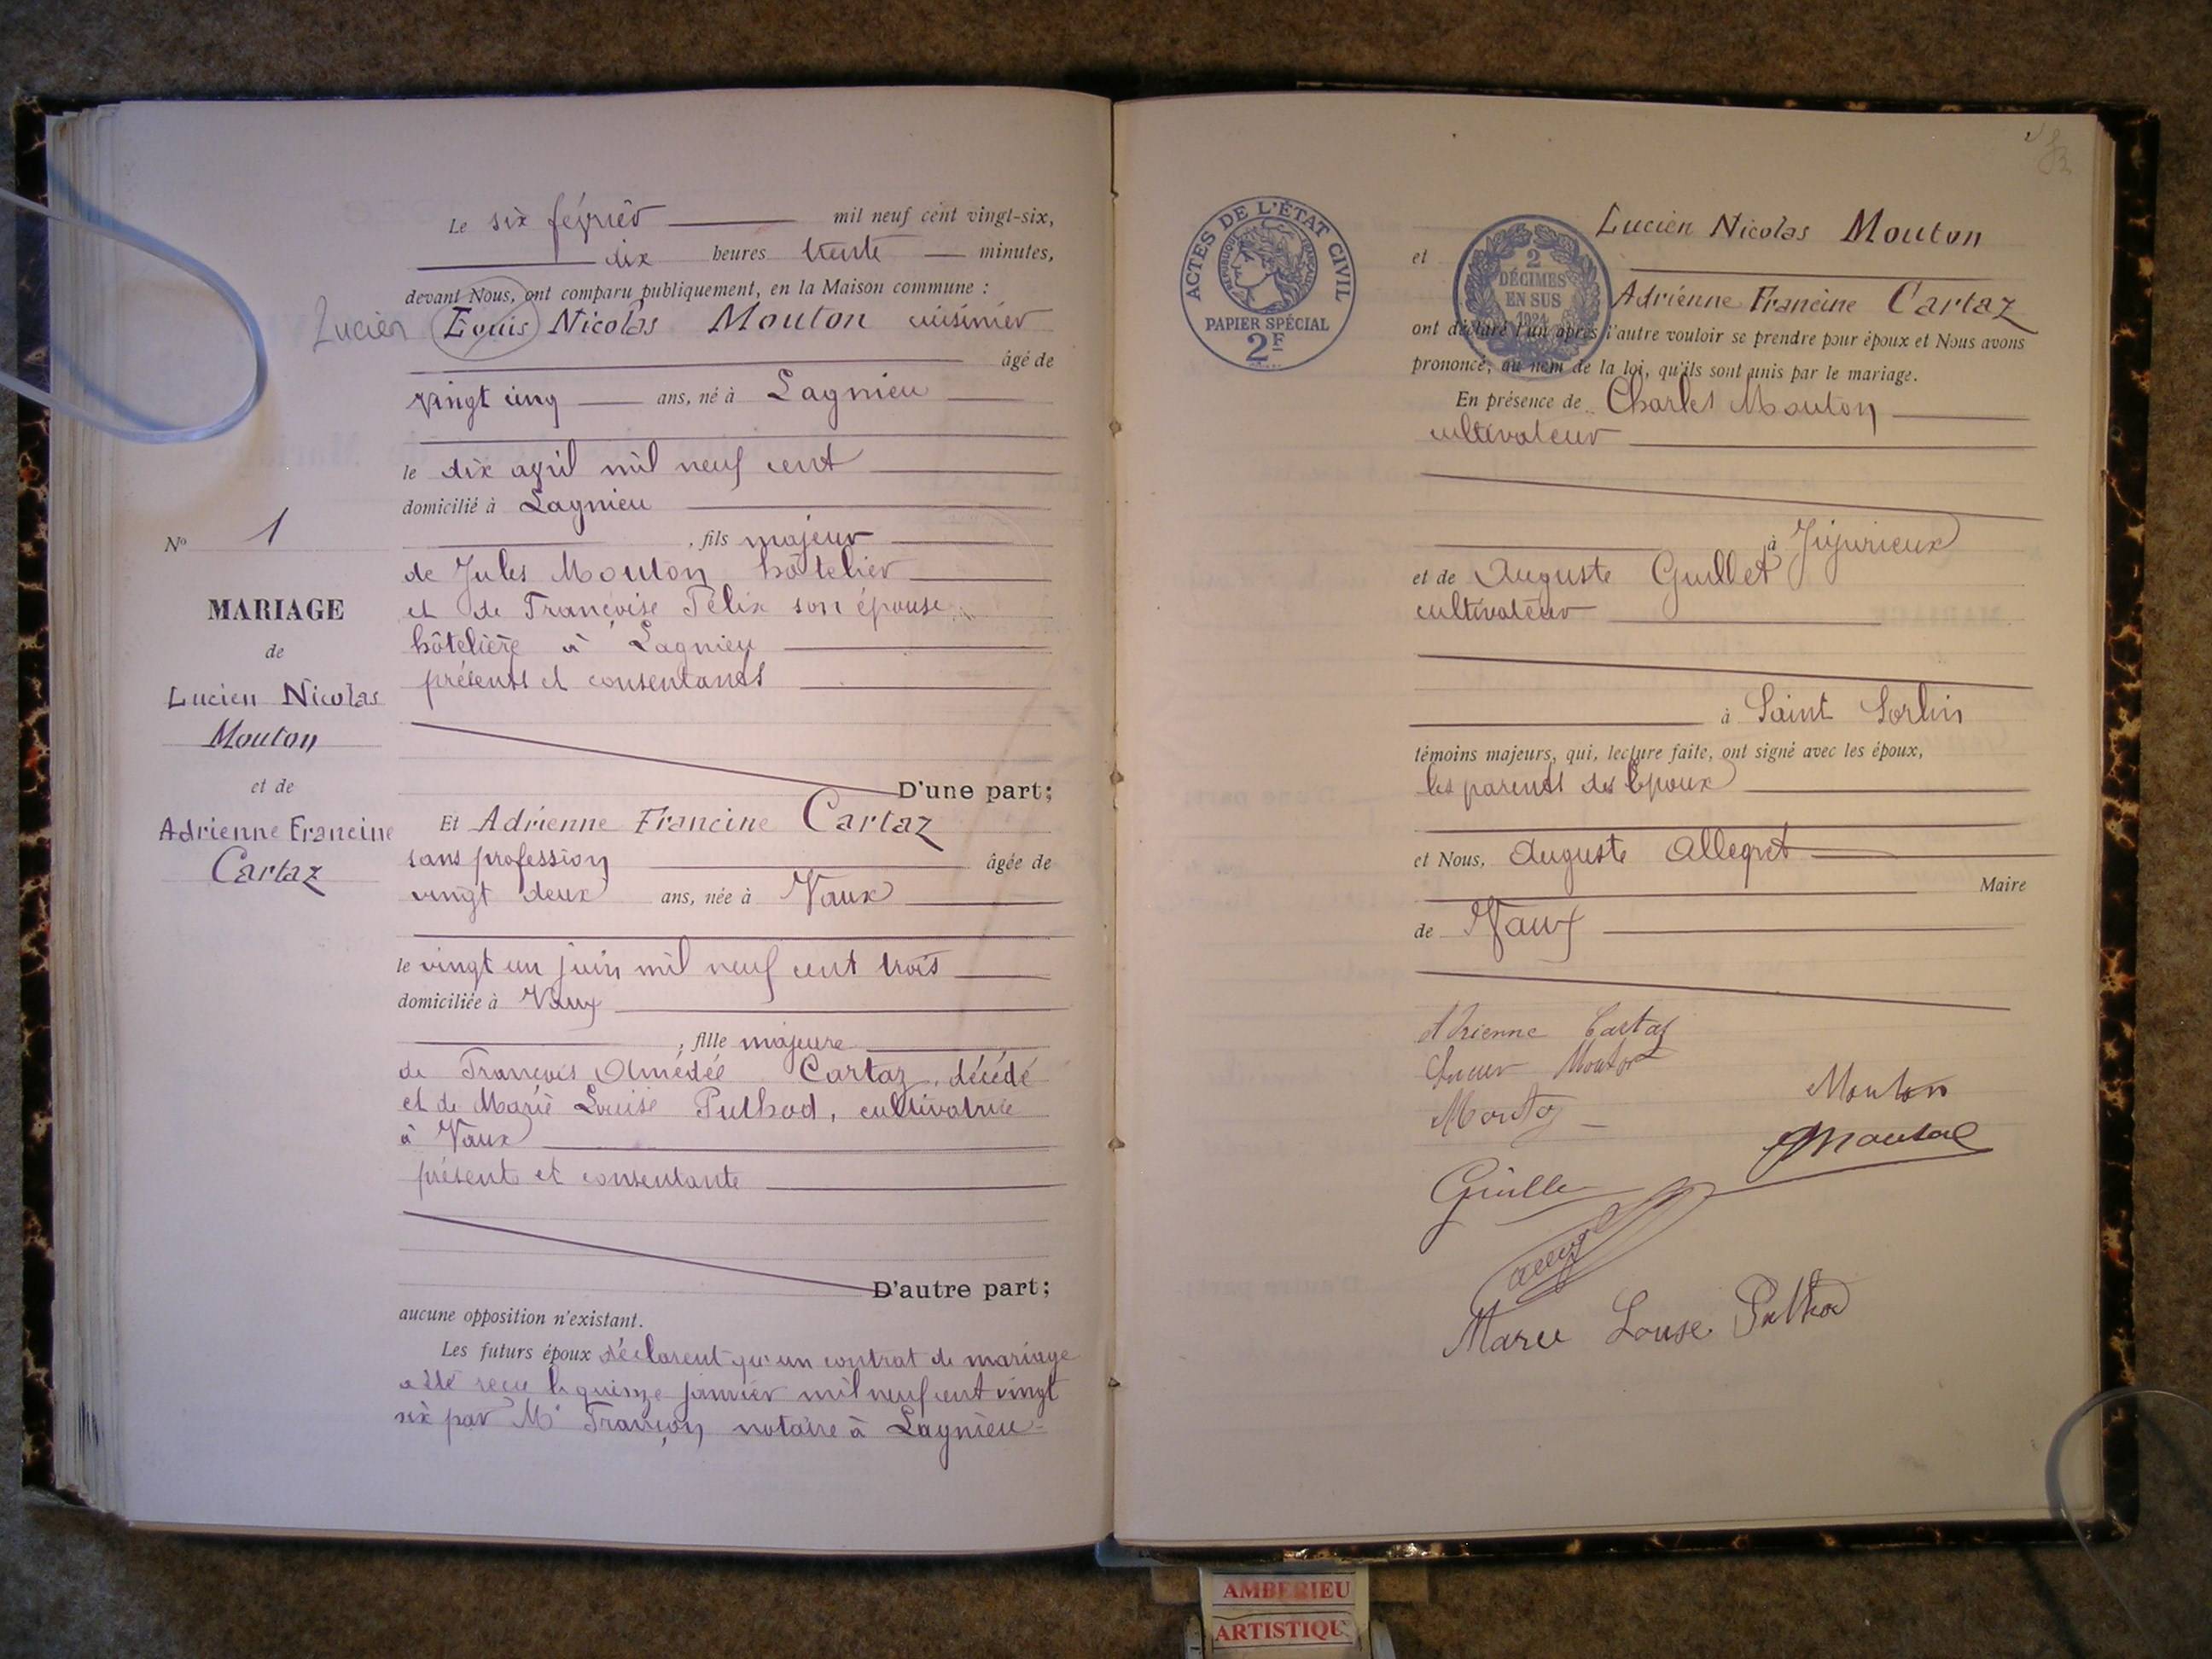 Le six février mil neuf cent vingt-six,
dix heures trente minutes,
devant Nous, ont comparu publiquement, en la Maison commune :
Lucien Louis Nicolas Mouton cuisinier
âgé de
vingt cinq ans, né à Lagnieu
le dix avril mil neuf cent
domicilié à Lagnieu
, fils majeur
de Jules Mouton hôtelier
et de Françoise Félix son épouse
hôtelière à Lagnieu
présents et consentants
D'une part;
Et Adrienne Francine Cartaz
sans profession âgée de
vingt deux ans, née à Vaux
le vingt un juin mil neuf cent trois
domiciliée à Vaux
, fille majeure
de François Amédée Cartaz, décédé
et de Marie Louise Puthod, cultivatrice
à Vaux
présente et consentante
D'autre part;
aucune opposition n'existant.
Les futurs époux déclarent qu'un contrat de mariage
a été reçu le quinze janvier mil neuf cent vingt
six par Me Françon notaire à Lagnieu
No 1
MARIAGE
de
Lucien Nicolas
Mouton
et de
Adrienne Francine
Cartaz
ACTES DE L'ÉTAT CIVIL
RÉPUBLIQUE FRANÇAISE
PAPIER SPÉCIAL
2F
2
DÉCIMES
EN SUS
1924
Lucien Nicolas Mouton
et
Adrienne Francine Cartaz
ont déclaré l'un après l'autre vouloir se prendre pour époux et Nous avons
prononcé, au nom de la loi, qu'ils sont unis par le mariage.
En présence de Charles Mouton
cultivateur
à Jujurieux
et de Auguste Guillet
cultivateur
à Saint Sorlin
témoins majeurs, qui, lecture faite, ont signé avec les époux,
les parents des époux
et Nous, Auguste Allegret
Maire
de Vaux
Adrienne Cartaz
Lucien Mouton
Mouton
Mouton
Guille
Marie Louise Puthod
AMBERIEU
ARTISTIQU